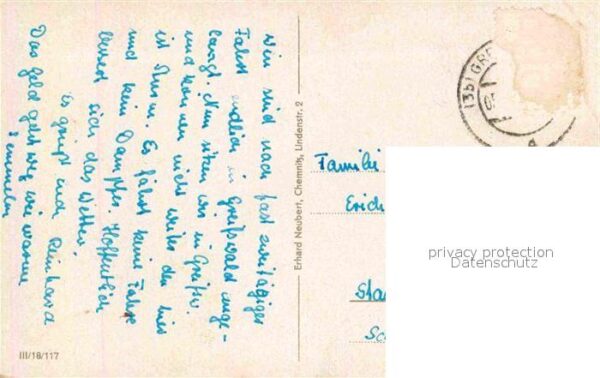 Wir sind nach fast zweitägiger
Fahrt endlich in Greifswald ange-
langt. Nun sitzen wir in Greifsw.
und können nicht weiter, denn hier
ist Sturm. Es fährt keine Fähre
und kein Dampfer. Hoffentlich
bessert sich das Wetter.
Es grüßt euch Reinhard
Das Geld geht weg wie warme
Semmeln
III/18/117
Erhard Neubert, Chemnitz, Lindenstr. 2
(3b) GRE
Famili
Erich
Sta
Sc
privacy protection
Datenschutz